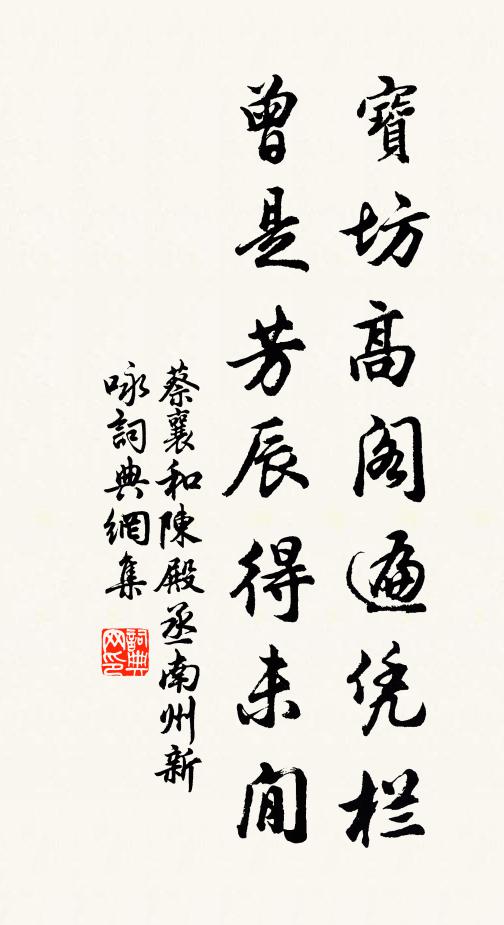 寶坊高阁遍凭栏
曾是芳辰得未闲
蔡襄和陳殿丞南州新
咏詞典網集
詞典
网印